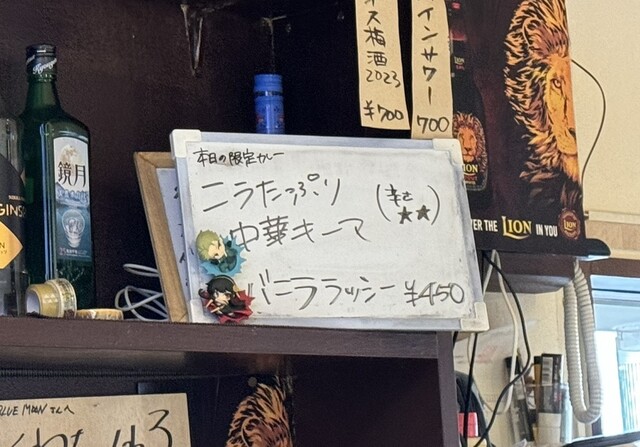 ス梅酒
2023
¥700
インサワー
700
鏡月
本日の限定カレー
ニラたっぷり
中華キーマ
(辛さ
★★)
バニララッシー ¥450
LION
THE LION IN YOU
BLUE MOON さんへ